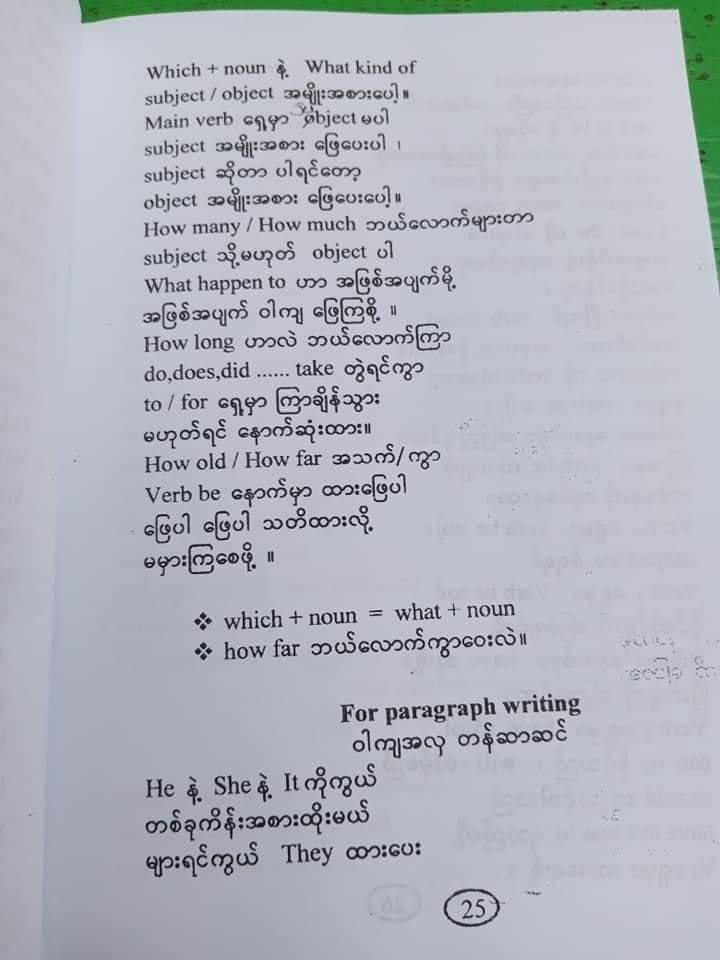 Which + noun နဲ့ What kind of
subject / object အမျိုးအစားပေါ့။
Main verb ရှေ့မှာ object မပါ
subject အမျိုးအစား ဖြေပေးပါ ၊
subject ဆိုတာ ပါရင်တော့
object အမျိုးအစား ဖြေပေးပေါ့။
How many / How much ဘယ်လောက်များတာ
subject သို့မဟုတ် object ပါ
What happen to ဟာ အဖြစ်အပျက်မို့
အဖြစ်အပျက် ဝါကျ ဖြေကြစို့ ။
How long ဟာလဲ ဘယ်လောက်ကြာ
do,does,did ...... take တွဲရင်ကွာ
to / for ရှေ့မှာ ကြာချိန်သွား
မဟုတ်ရင် နောက်ဆုံးထား။
How old / How far အသက်/ကွာ
Verb be နောက်မှာ ထားဖြေပါ
ဖြေပါ ဖြေပါ သတိထားလို့
မမှားကြစေဖို့ ။
❖ which + noun = what + noun
❖ how far ဘယ်လောက်ကွာဝေးလဲ။
For paragraph writing
ဝါကျအလှ တန်ဆာဆင်
He နဲ့ She နဲ့ It ကိုကွယ်
တစ်ခုကိန်းအစားထိုးမယ်
များရင်ကွယ် They ထားပေး
25